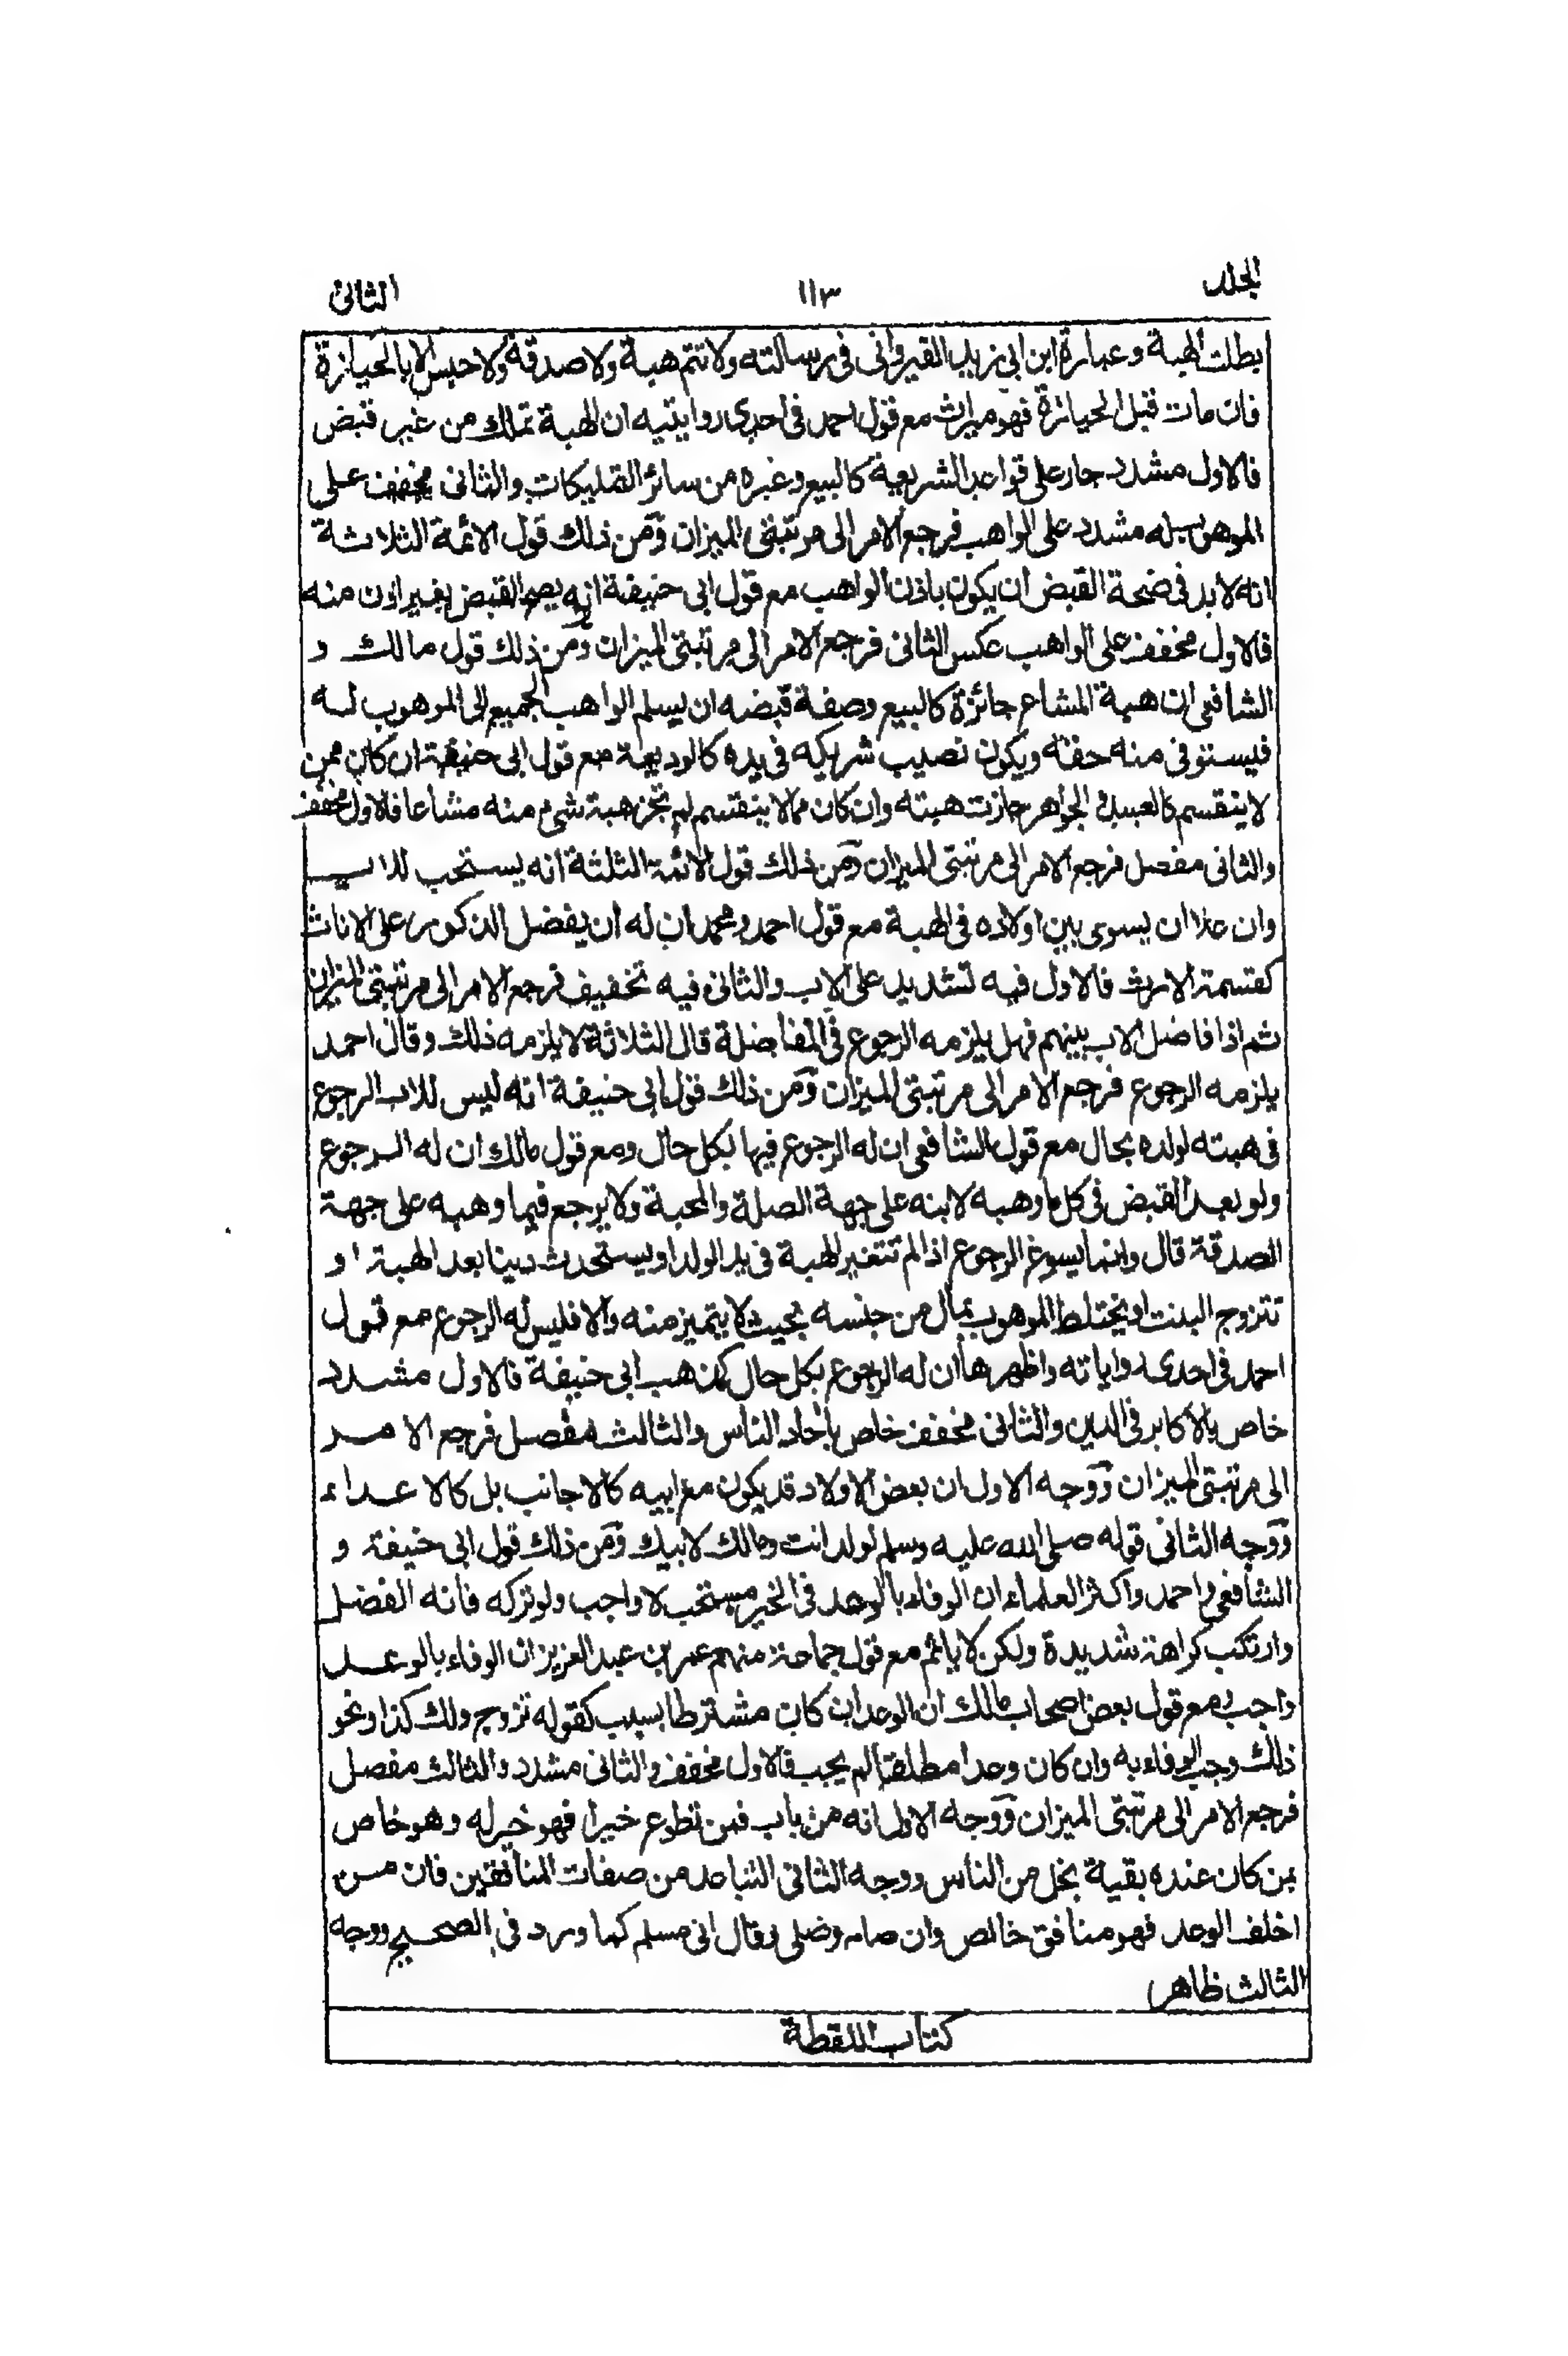 الجلد ١١٣ الثانى
بطلت الهبة وعبارة ابن ابي زيد القيروانى فى رسالته ولا تتم هبة ولا صدقة ولا حبس الا بالحيازة
فان مات قبل الحيازة فهو ميراث مع قول احمد فى احدى روايتيه ان الهبة تملك من غير قبض
فالاول مشدد جار على قواعد الشريعة كالبيع وغيره من سائر التمليكات والثانى مخفف على
الموهوب له مشدد على الواهب فرجع الامر الى مرتبتى الميزان ومن ذلك قول الائمة الثلاثة
انه لا بد فى صحة القبض ان يكون باذن الواهب مع قول ابى حنيفة انه يصح القبض بغير اذن منه
فالاول مخفف على الواهب عكس الثانى فرجع الامر الى مرتبتى الميزان ومن ذلك قول مالك و
الشافعى ان هبة المشاع جائزة كالبيع وصفة قبضه ان يسلم الواهب الجميع الى الموهوب له
فيستوفى منه حقه ويكون نصيب شريكه فى يده كالوديعة مع قول ابى حنيفة ان كان ممن
لا ينقسم كالعبيد والجواهر جازت هبته وان كان مما لا ينقسم لم تجز هبة شىء منه مشاعا فالاول مخفف
والثانى مفصل فرجع الامر الى مرتبتى الميزان ومن ذلك قول الائمة الثلثة انه يستحب للاب
وان علا ان يسوى بين اولاده فى الهبة مع قول احمد ومحمد ان له ان يفضل الذكور على الاناث
كقسمة الارث فالاول فيه تشديد على الاب والثانى فيه تخفيف فرجع الامر الى مرتبتى الميزان
ثم اذا فاضل الاب بينهم فهل يلزمه الرجوع فى المفاضلة قال الثلاثة لا يلزمه ذلك وقال احمد
يلزمه الرجوع فرجع الامر الى مرتبتى الميزان ومن ذلك قول ابى حنيفة انه ليس للاب الرجوع
فى هبته لولده بحال مع قول الشافعى ان له الرجوع فيها بكل حال ومع قول مالك ان له الرجوع
ولو بعد القبض فى كل ما وهبه لابنه على جهة الصلة والمحبة ولا يرجع فيما وهبه على جهة
الصدقة قال وانما يسوغ الرجوع اذا لم تتغير الهبة فى يد الولد او يستحدث دينا بعد الهبة او
تتزوج البنت او يختلط الموهوب بمال من جنسه بحيث لا يتميز منه والا فليس له الرجوع مع قول
احمد فى احدى رواياته واظهرها ان له الرجوع بكل حال كمذهب ابى حنيفة فالاول مشدد
خاص بالاكابر فى الدين والثانى مخفف خاص بآحاد الناس والثالث مفصل فرجع الامر
الى مرتبتى الميزان ووجه الاول ان بعض الاولاد قد يكون مع ابيه كالاجانب بل كالاعداء
ووجه الثانى قوله صلى الله عليه وسلم لولد انت ومالك لابيك ومن ذلك قول ابى حنيفة و
الشافعى واحمد واكثر العلماء ان الوفاء بالوعد فى الخير مستحب لا واجب ولو تركه فاته الفضل
وارتكب كراهة شديدة ولكن لا ياثم مع قول جماعة منهم عمر بن عبد العزيز ان الوفاء بالوعد
واجب ومع قول بعض اصحاب مالك ان الوعد ان كان مشترطا بسبب كقوله تزوج ولك كذا ونحو
ذلك وجب الوفاء به وان كان وعدا مطلقا لم يجب فالاول مخفف والثانى مشدد والثالث مفصل
فرجع الامر الى مرتبتى الميزان ووجه الاول انه من باب فمن تطوع خيرا فهو خير له وهو خاص
بمن كان عنده بقية بخل من الناس ووجه الثانى التباعد من صفات المنافقين فان من
اخلف الوعد فهو منافق خالص وان صام وصلى وقال انى مسلم كما ورد فى الصحيح ووجه
الثالث ظاهر
كتاب اللقطة